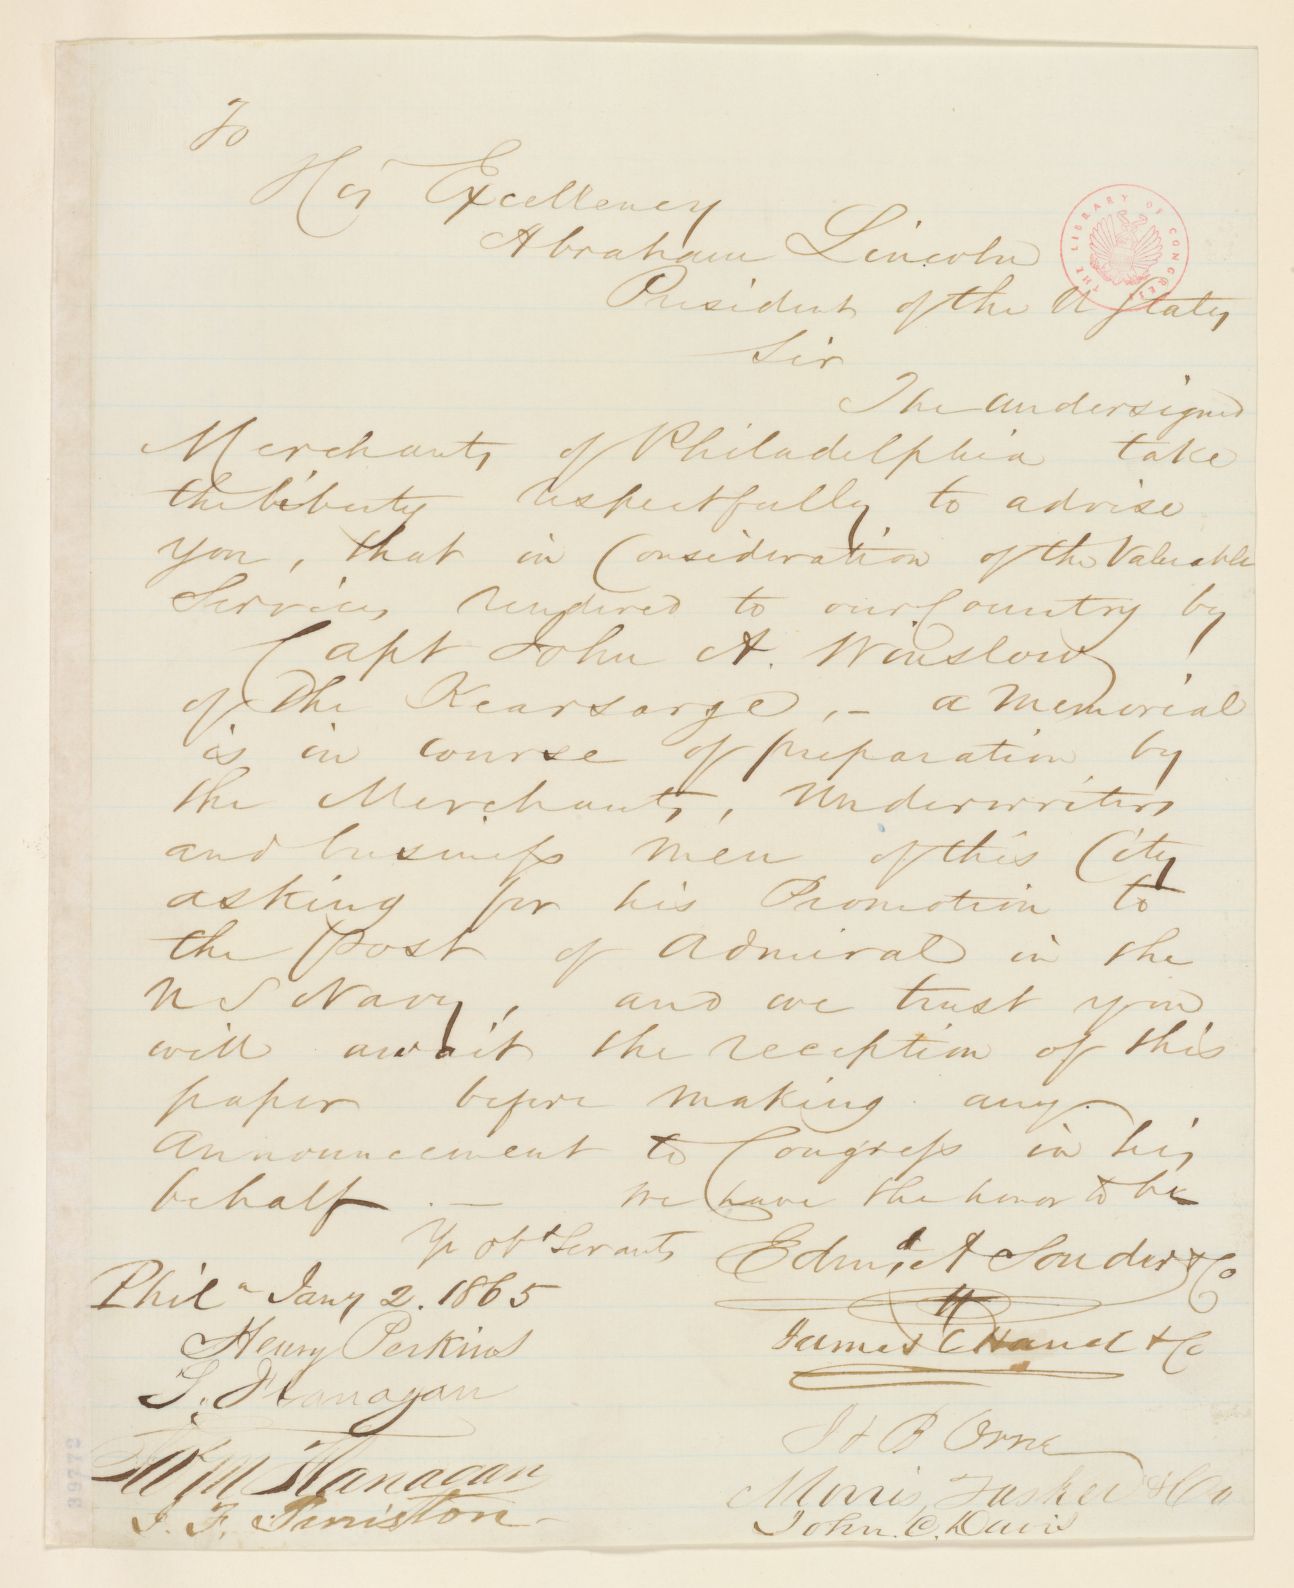 To
His Excellency
Abraham Lincoln
President of the U States
Sir
The undersigned
Merchants of Philadelphia take
the liberty respectfully to advise
you, that in Consideration of the Valuable
Services rendered to our Country by
Capt John A. Winslow
of the Kearsarge, – a memorial
is in course of preparation by
the Merchants, Underwriters
and business men of this City
asking for his Promotion to
the post of Admiral in the
U S Navy, and we trust you
will await the reception of this
paper before making any
announcement to Congress in his
behalf. — We have the honor to be
Yr obt Servants
Edmd A Souder & Co
Phila Jany 2. 1865
James C Hand & Co
Henry Perkins
S. Flanagan
J & B Orne
Wm Flanagan
Morris, Tasker & Co
J. F. Penniston
John. C. Davis
THE LIBRARY OF CONGRESS
39772